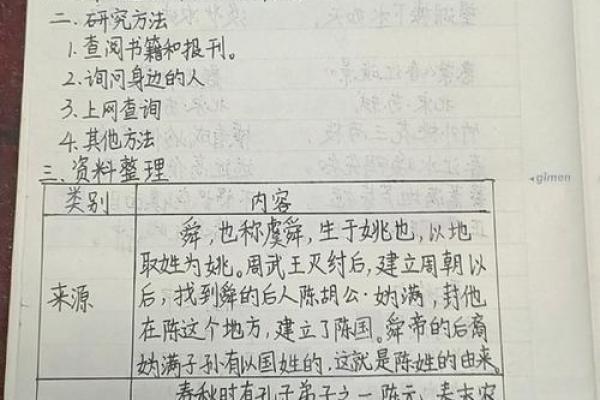 二、研究方法
1.查阅书籍和报刊。
2.询问身边的人
3.上网查询
4.其他方法
三、资料整理
类别 内容
舜,也称虞舜,生于姚也,以地
取姓为姚。周武王灭纣后,建立周朝以
来源 后,找到舜的后人陈胡公·妫满,封他
在陈这个地方,建立了陈国。舜帝的后裔
妫满子孙有以国姓的,这就是陈姓的由来。
春秋时有孔子弟子之一陈元,秦末农
gimen